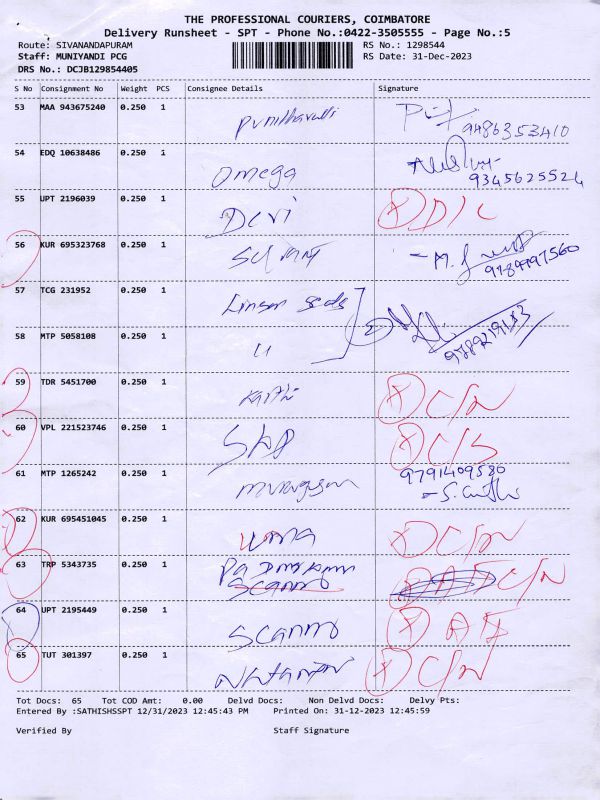 THE PROFESSIONAL COURIERS, COIMBATORE
Delivery Runsheet - SPT - Phone No.:0422-3505555 - Page No.:5
Route: SIVANANDAPURAM RS No.: 1298544
Staff: MUNIYANDI PCG RS Date: 31-Dec-2023
DRS No.: DCJB129854405
S No Consignment No Weight PCS Consignee Details Signature
53 MAA 943675240 0.250 1
9486353410
54 EDQ 10638486 0.250 1
Omega 9345625524
55 UPT 2196039 0.250 1
Devi D/L
56 KUR 695323768 0.250 1
9789797560
57 TCG 231952 0.250 1
58 MTP 5058108 0.250 1
9789219183
59 TDR 5451700 0.250 1
Karthi C/N
60 VPL 221523746 0.250 1
C/S
61 MTP 1265242 0.250 1
9791409580
murugesan
62 KUR 695451045 0.250 1
uma C/N
63 TRP 5343735 0.250 1
C/N
64 UPT 2195449 0.250 1
65 TUT 301397 0.250 1
C/N
Tot Docs: 65 Tot COD Amt: 0.00 Delvd Docs: Non Delvd Docs: Delvy Pts:
Entered By :SATHISHSSPT 12/31/2023 12:45:43 PM Printed On: 31-12-2023 12:45:59
Verified By Staff Signature